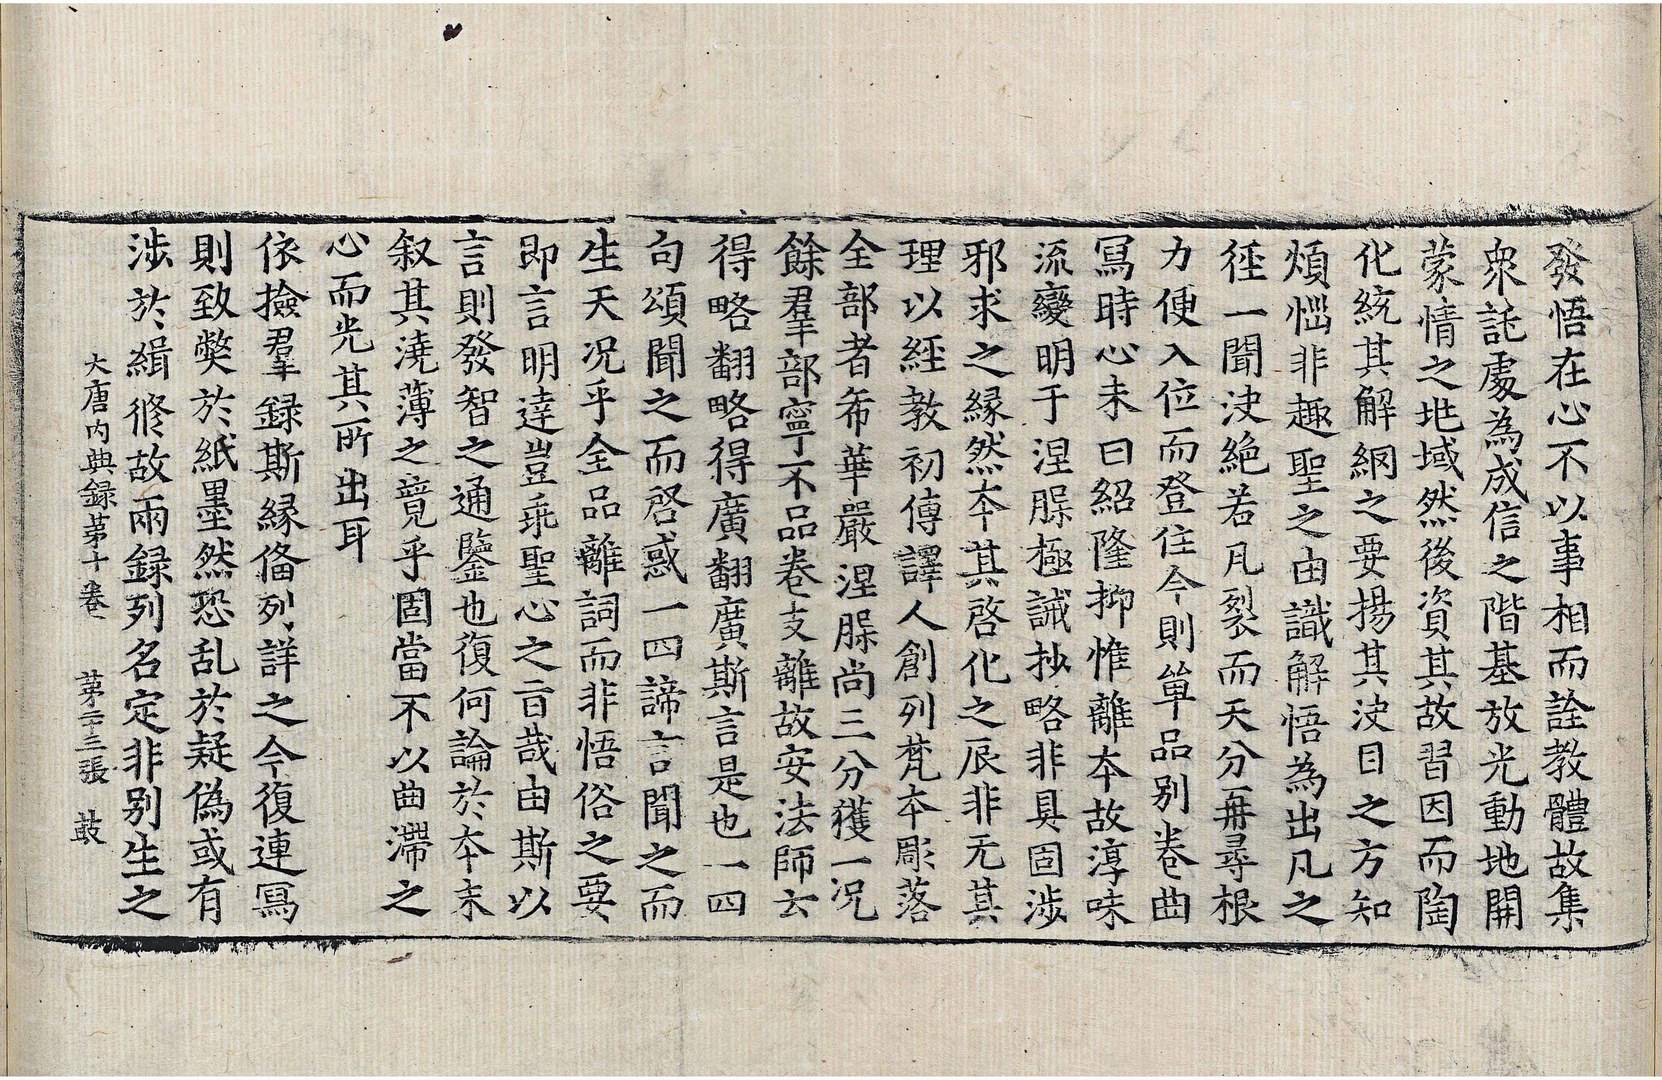 發悟在心不以事相而詮教體故集
衆託處為成信之階基放光動地開
蒙情之地域然後資其故習因而陶
化統其解網之要揚其決目之方知
煩惱非趣聖之由識解悟為出凡之
徑一聞決絕若凡裂而天分再尋根
力便入位而登住今則單品別卷曲
寫時心未曰紹隆抑惟離本故淳味
流變明于涅脲極誡抄略非具固涉
邪求之縁然本其啓化之辰非无其
理以經教初傳譯人創列梵本彫落
全部者希華嚴涅脲尚三分獲一況
餘羣部寧不品卷支離故安法師云
得略翻略得廣翻廣斯言是也一四
句頌聞之而啓惑一四諦言聞之而
生天況乎全品離詞而非悟俗之要
即言明達豈乖聖心之旨哉由斯以
言則發智之通鑒也復何論於本末
叙其澆薄之竟乎固當不以曲滯之
心而光其所出耳
依撿羣録斯縁俻列詳之今復連寫
則致弊於紙墨然恐乱於疑偽或有
涉於緝脩故兩録列名定非別生之
大唐內典録第十卷 第二十三張 鼓